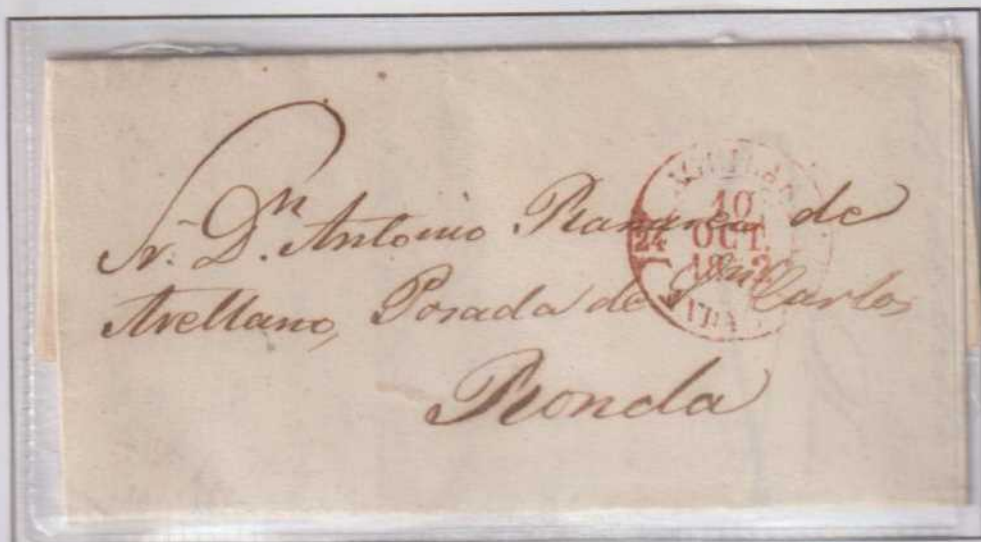 Sr. Dn. Antonio Ramirez de
Arellano, Posada de San Carlos,
Ronda
10
OCT.
24